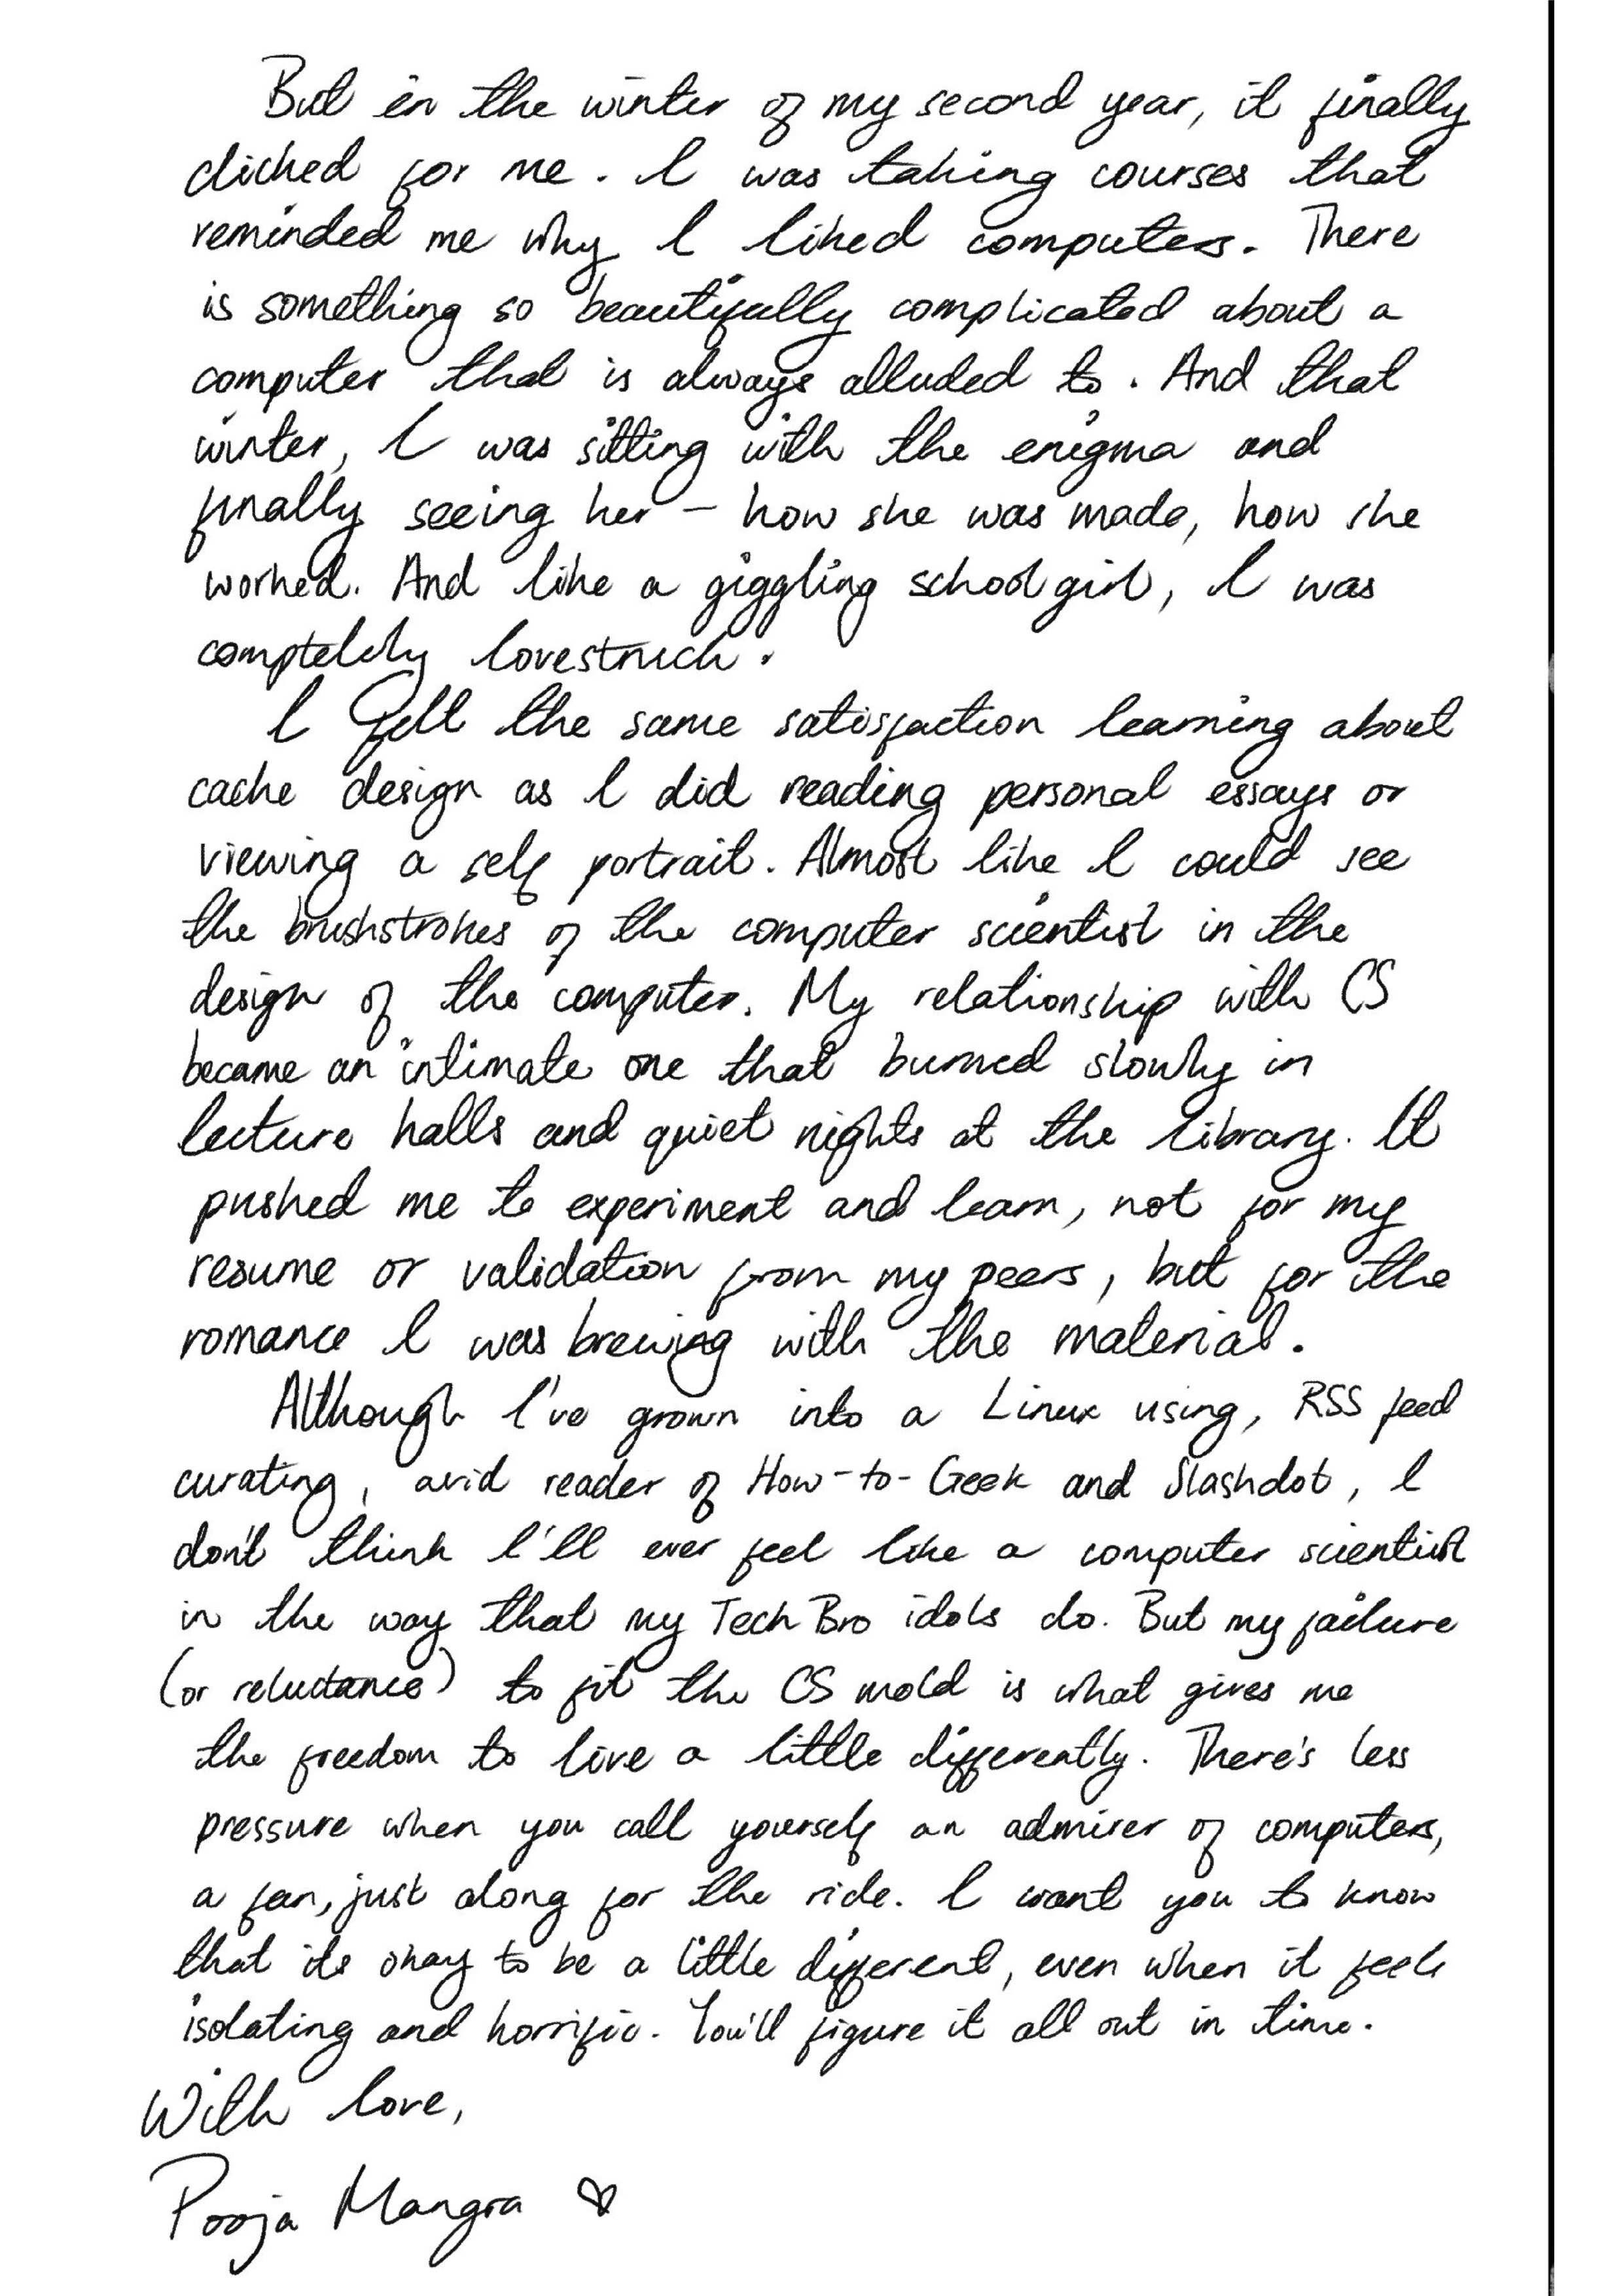 But in the winter of my second year, it finally
clicked for me. I was taking courses that
reminded me why I liked computers. There
is something so beautifully complicated about a
computer that is always alluded to. And that
winter, I was sitting with the enigma and
finally seeing her – how she was made, how she
worked. And like a giggling schoolgirl, I was
completely lovestruck.
I felt the same satisfaction learning about
cache design as I did reading personal essays or
viewing a self portrait. Almost like I could see
the brushstrokes of the computer scientist in the
design of the computer. My relationship with CS
became an intimate one that burned slowly in
lecture halls and quiet nights at the library. It
pushed me to experiment and learn, not for my
resume or validation from my peers, but for the
romance I was brewing with the material.
Although I've grown into a Linux using, RSS feed
curating, avid reader of How-to-Geek and Slashdot, I
don't think I'll ever feel like a computer scientist
in the way that my Tech Bro idols do. But my failure
(or reluctance) to fit the CS mold is what gives me
the freedom to live a little differently. There's less
pressure when you call yourself an admirer of computers,
a fan, just along for the ride. I want you to know
that its okay to be a little different, even when it feels
isolating and horrific. You'll figure it all out in time.
With love,
Pooja Mangra ♡